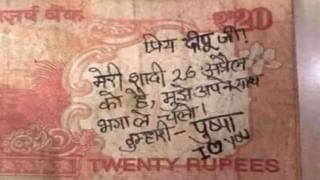 ज़र्व बैंक
₹20
प्रिय दीपू जी।
मेरी शादी 26 अप्रैल
को है, मुझे अपने साथ
भगा ले चलो।
तुम्हारी - पुष्पा
I ♡ YOU
TWENTY RUPEES